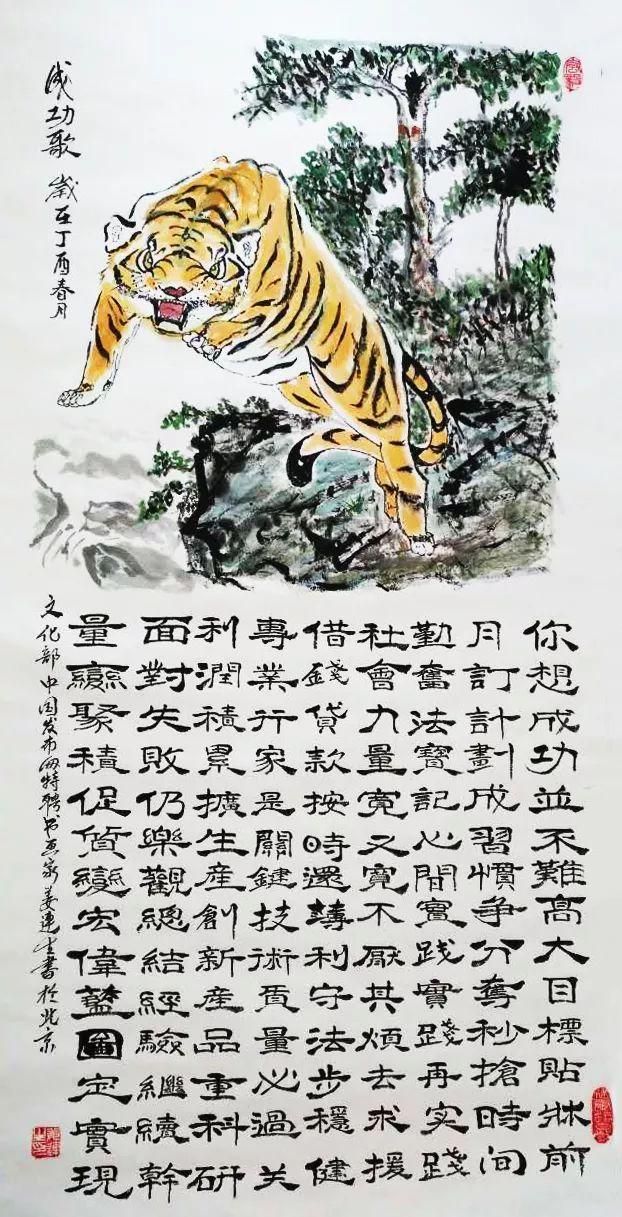 成功歌 歲在丁酉春月
你想成功並不難高大目標貼牀前
月訂計劃成習慣争分奪秒搶時间
勤奮法寶記心間實践實踐再实踐
社會力量寬又寬不厭其煩去求援
借錢貸款按時還薄利守法步穩健
專業行家是關鍵技術质量必過关
利潤積累擴生産創新産品重科研
面對失敗仍樂觀總結經驗繼續幹
量變聚積促質變宏偉藍圖定實現
文化部中国发布网特聘书画家姜連生書於北京